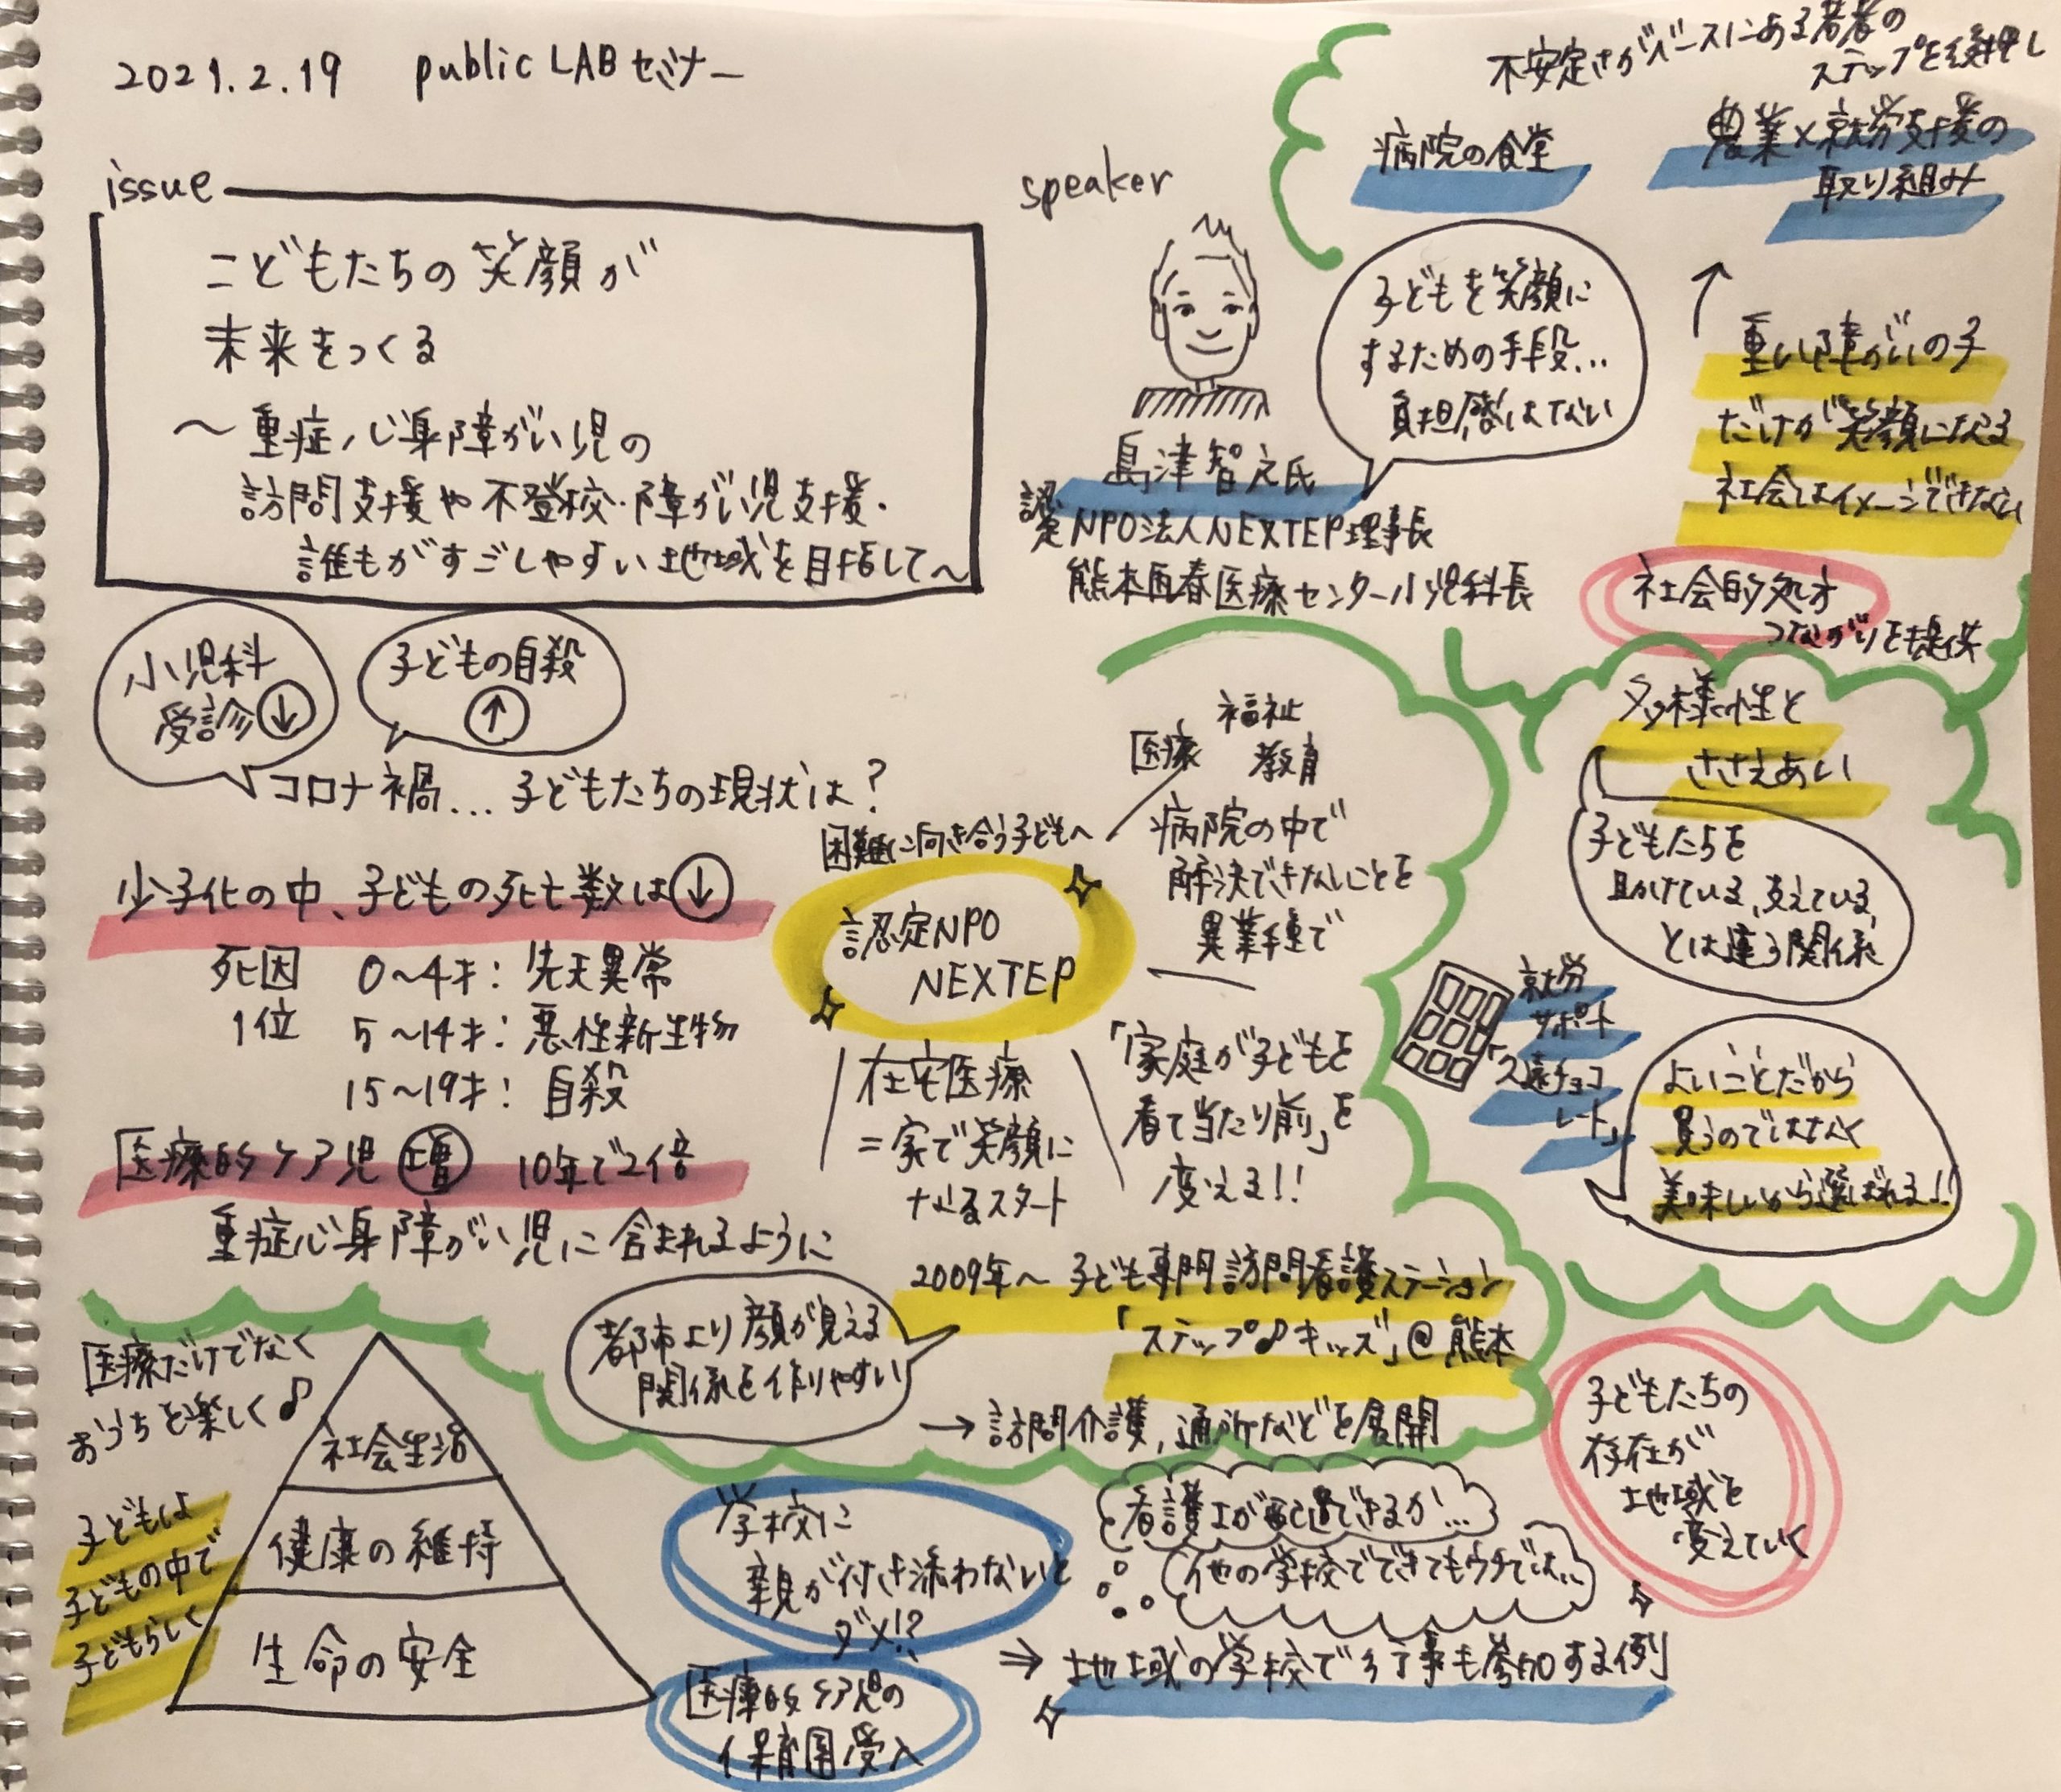 2021.2.19 public LABセミナー
issue
こどもたちの笑顔が
未来をつくる
〜重症心身障がい児の
訪問支援や不登校・障がい児支援・
誰もがすごしやすい地域を目指して〜
speaker
島津智之氏
認定NPO法人NEXTEP理事長
熊本再春医療センター小児科長
子どもを笑顔に
するための手段...
負担感はない
不安定さがベースにある若者の
ステップを後押し
病院の食堂
農業×就労支援の
取り組み
↑
重い障がいの子
だけが笑顔になる
社会はイメージできない
社会的処方
つながりを提供
小児科
受診↓
子どもの自殺
↑
コロナ禍...子どもたちの現状は?
少子化の中、子どもの死亡数は↓
死因 0〜4才:先天異常
1位 5〜14才:悪性新生物
15〜19才:自殺
医療的ケア児 増 10年で2倍
重症心身障がい児に含まれるように
困難に向き合う子どもへ
認定NPO
NEXTEP
福祉
医療 教育
病院の中で
解決できないことを
異業種で
在宅医療
=家で笑顔に
なるスタート
「家庭が子どもを
看て当たり前」を
変える!!
2009年〜子ども専門訪問看護ステーション
「ステップ♪キッズ」@熊本
→訪問介護,通所などを展開
都市より顔が見える
関係を作りやすい
多様性と
ささえあい
子どもたちを
助けている、支えている、
とは違う関係
就労
サポート
「久遠チョコ
レート」
よいことだから
買うのではなく
美味しいから選ばれる!!
医療だけでなく
おうちを楽しく♪
社会生活
健康の維持
生命の安全
子どもは
子どもの中で
子どもらしく
学校に
親が付き添わないと
ダメ!?
医療的ケア児の
保育園受入
看護士が配置できるか...
他の学校でできてもウチでは...
⇒地域の学校で行事も参加する例
子どもたちの
存在が
地域を
変えていく